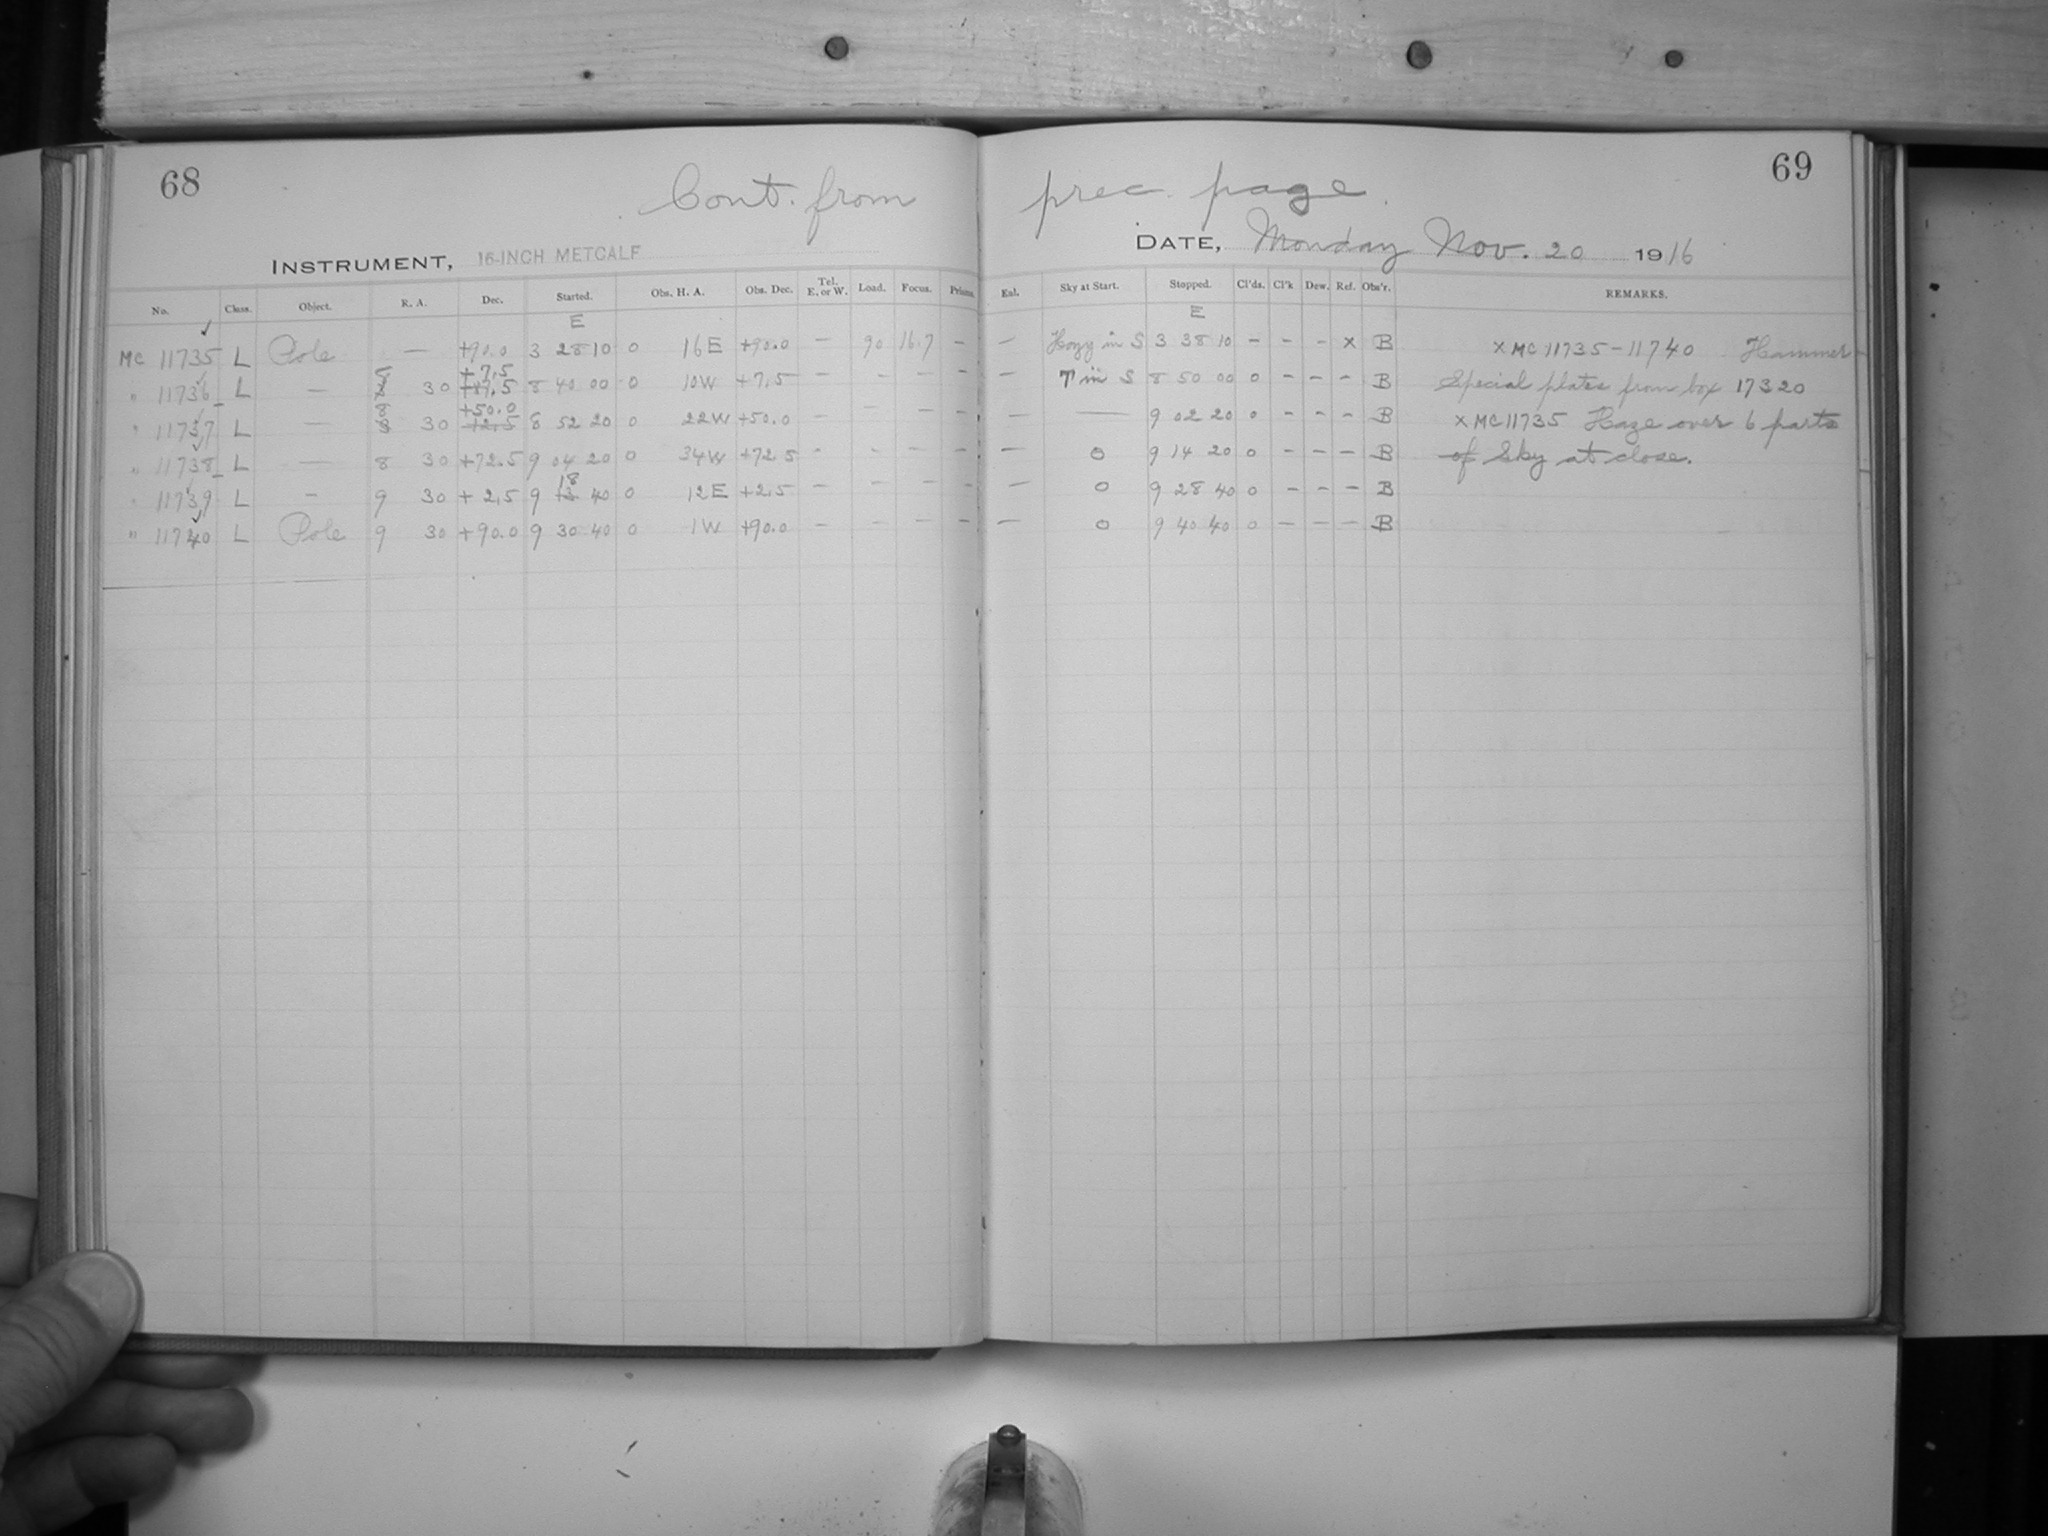 68
69
Cont. from prec. page
INSTRUMENT, 16-INCH METCALF
DATE, Monday Nov. 20 1916
No. Class. Object. R. A. Dec. Started. Obs. H. A. Obs. Dec. Tel. E. or W. Load. Focus. Prisms. Eal. Sky at Start. Stopped. Cl'ds. Cl'k Dew. Ref. Obs'r. REMARKS.
E E
MC 11735 L Pole — +90.0 3 28 10 0 16 E +90.0 — 90 16.7 — — Hazy in S 3 38 10 - - - x B x MC 11735-11740 Hammer
" 11736 L — 30 +7.5 8 40 00 0 10W +7.5 — — — — — in S 8 50 00 0 - - - B Special plates from box 17320
" 11737 L — 8 30 +50.0 8 52 20 0 22W +50.0 — — — — — — 9 02 20 0 - - - B x MC11735 Haze over 6 parts
" 11738 L — 8 30 +72.5 9 04 20 0 34W +72.5 - - - - — 0 9 14 20 0 - - - B of Sky at close.
" 11739 L - 9 30 + 2.5 9 18 40 0 12 E +2.5 — — — — — 0 9 28 40 0 - - - B
" 11740 L Pole 9 30 +90.0 9 30 40 0 1 W +90.0 — — — — — 0 9 40 40 0 - - - B